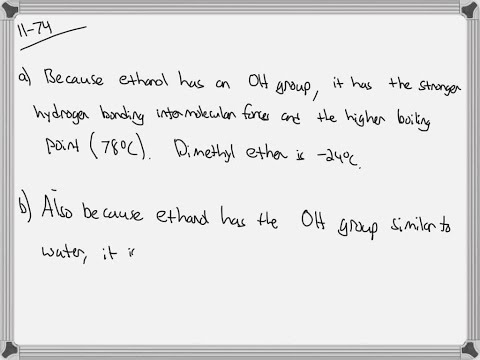 11-74
a) Because ethanol has an OH group, it has the stronger
hydrogen bonding intermolecular forces and the higher boiling
point (78°C). Dimethyl ether is -24°C.
b) Also because ethanol has the OH group similar to
water, it i